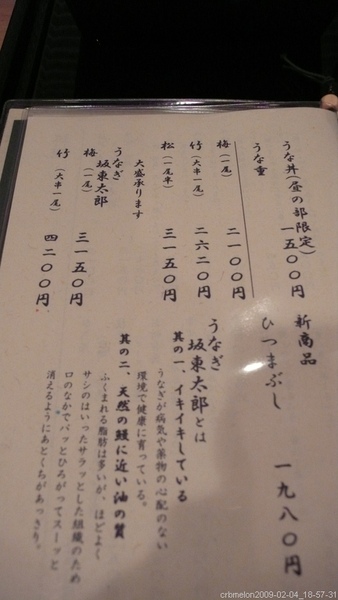 うな丼(昼の部限定)
一五〇〇円
うな重
梅(一尾) 二一〇〇円
竹(大串一尾) 二六二〇円
松(一尾半) 三一五〇円
大盛承ります
うなぎ
坂東太郎
梅(一尾) 三一五〇円
竹(大串一尾) 四二〇〇円
新商品
ひつまぶし 一九八〇円
うなぎ
坂東太郎とは
其の一、イキイキしている
うなぎが病気や薬物の心配のない
環境で健康に育っている。
其の二、天然の鰻に近い油の質
ふくまれる脂肪は多いが、ほどよく
サシのはいったサラッとした組織のため
口のなかでパッとひろがってスーッと
消えるようにあとくちがあっさり。
crbmelon2009-02-04_18-57-31